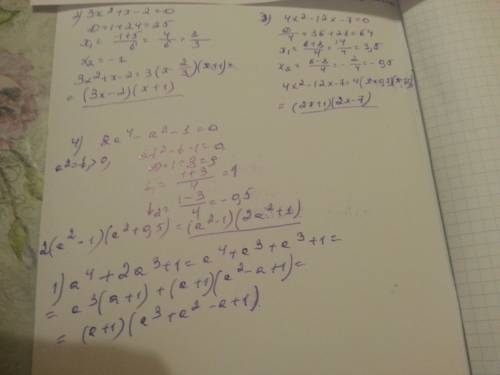 2) 3x²+x-2=0
D=1+24=25
x₁=(-1+5)/6=4/6=2/3
x₂=-1
3x²+x-2=3(x-2/3)(x+1)=
=(3x-2)(x+1)
3) 4x²-12x-7=0
D/4=36+28=64
x₁=(6+8)/4=14/4=3,5
x₂=(6-8)/4=-2/4=-0,5
4x²-12x-7=4(x+0,5)(x-3,5)=
=(2x+1)(2x-7)
4) 2a⁴-a²-1=0
a²=b,>0,
2b²-b-1=0
D=1+8=9
b₁=(1+3)/4=1
b₂=(1-3)/4=-0,5
2(a²-1)(a²+0,5)=(a²-1)(2a²+1)
1) a⁴+2a³+1=a⁴+a³+a³+1=
=a³(a+1)+(a+1)(a²-a+1)=
=(a+1)(a³+a²-a+1)